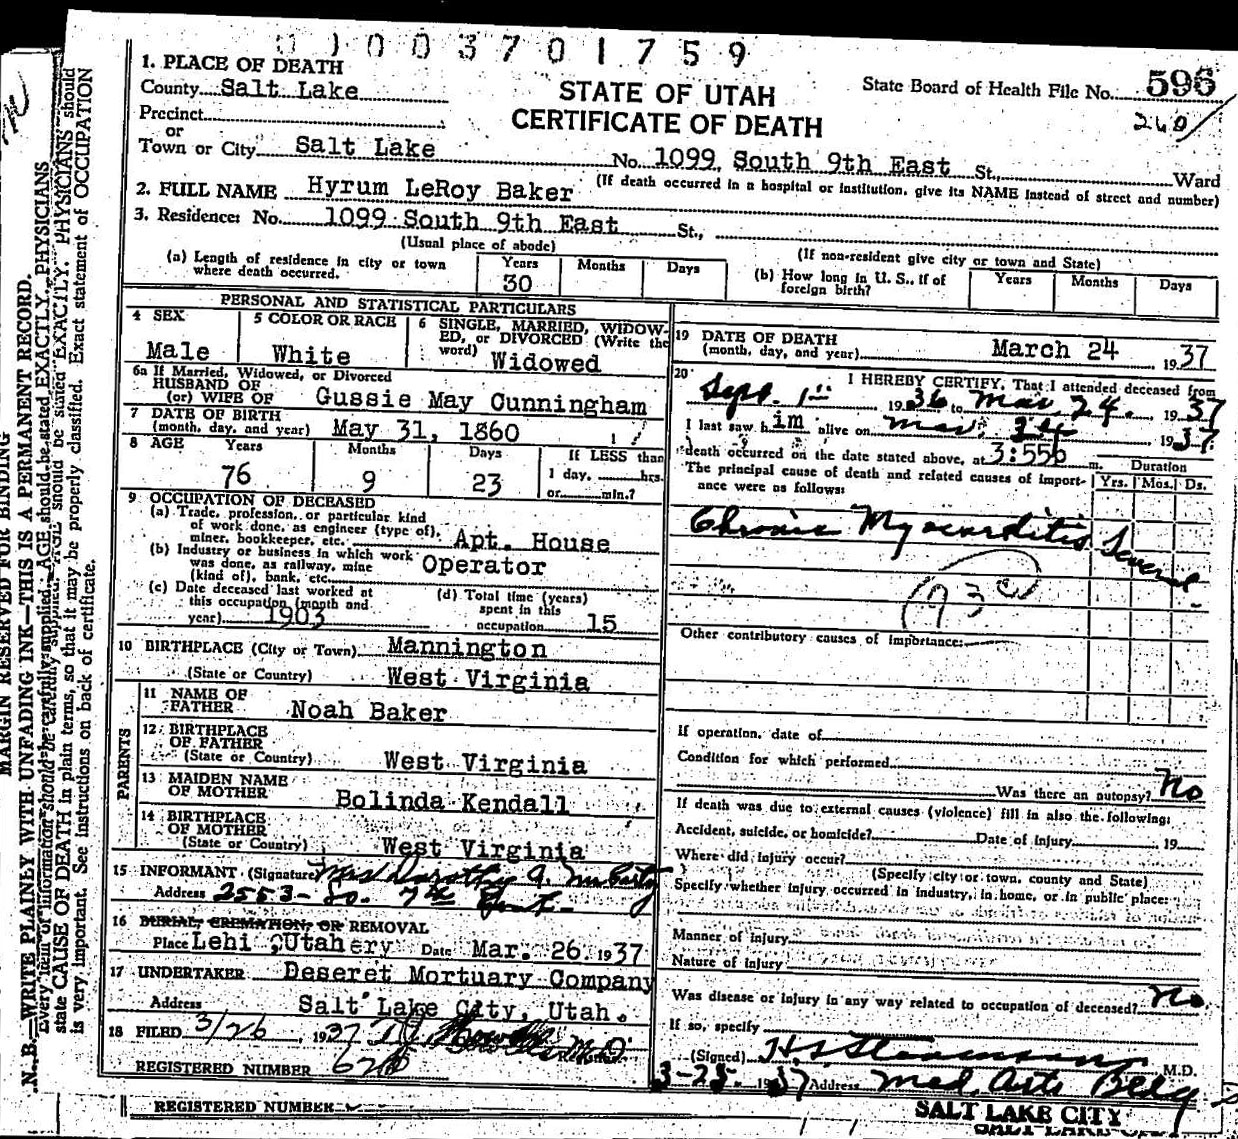 0 1 0 0 3 7 0 1 7 5 9
1. PLACE OF DEATH
County Salt Lake
STATE OF UTAH
CERTIFICATE OF DEATH
State Board of Health File No. 596
260/
Precinct
or
Town or City Salt Lake No. 1099 South 9th East St., Ward
(If death occurred in a hospital or institution, give its NAME instead of street and number)
2. FULL NAME Hyrum LeRoy Baker
3. Residence: No. 1099 South 9th East St.,
(Usual place of abode) (If non-resident give city or town and State)
(a) Length of residence in city or town where death occurred. Years 30 Months Days
(b) How long in U. S., if of foreign birth? Years Months Days
PERSONAL AND STATISTICAL PARTICULARS
4 SEX Male
5 COLOR OR RACE White
6 SINGLE, MARRIED, WIDOW-
ED, or DIVORCED (Write the
word) Widowed
6a If Married, Widowed, or Divorced
HUSBAND OF
(or) WIFE OF Gussie May Cunningham
7 DATE OF BIRTH
(month, day, and year) May 31, 1860
8 AGE Years 76 Months 9 Days 23 If LESS than
1 day, hrs.
or min.?
9 OCCUPATION OF DECEASED
(a) Trade, profession, or particular kind
of work done, as engineer (type of),
miner, bookkeeper, etc. Apt. House
(b) Industry or business in which work
was done, as railway, mine
(kind of), bank, etc. Operator
(c) Date deceased last worked at
this occupation (month and
year) 1903
(d) Total time (years)
spent in this
occupation 15
10 BIRTHPLACE (City or Town) Mannington
(State or Country) West Virginia
PARENTS
11 NAME OF
FATHER Noah Baker
12 BIRTHPLACE
OF FATHER
(State or Country) West Virginia
13 MAIDEN NAME
OF MOTHER Bolinda Kendall
14 BIRTHPLACE
OF MOTHER
(State or Country) West Virginia
15 INFORMANT (Signature) Mrs Dorothy A. McCarty
Address 2553 - So. 7th East
16 BURIAL, CREMATION, OR REMOVAL
Place Lehi, Utah Date Mar. 26, 1937
17 UNDERTAKER Deseret Mortuary Company
Address Salt Lake City, Utah.
18 FILED 3/26, 1937
REGISTERED NUMBER
REGISTERED NUMBER
19 DATE OF DEATH
(month, day, and year) March 24 1937
20 I HEREBY CERTIFY, That I attended deceased from
Sept. 1st 1936 to Mar. 24. 1937
I last saw him alive on Mar. 24 1937
death occurred on the date stated above, at 3:55 m.
The principal cause of death and related causes of import-
ance were as follows:
Duration
Yrs. Mos. Ds.
Chronic Myocarditis Several
Other contributory causes of importance:
If operation, date of
Condition for which performed
Was there an autopsy? No
If death was due to external causes (violence) fill in also the following:
Accident, suicide, or homicide? Date of injury 19
Where did injury occur?
(Specify city or town, county and State)
Specify whether injury occurred in industry, in home, or in public place:
Manner of injury
Nature of injury
Was disease or injury in any way related to occupation of deceased? No
If so, specify
(Signed) M.D.
3-25. 1937 Address Med. Arts Bldg
SALT LAKE CITY
MARGIN RESERVED FOR BINDING
N. B.—WRITE PLAINLY WITH UNFADING INK—THIS IS A PERMANENT RECORD.
Every item of information should be carefully supplied. AGE should be stated EXACTLY. PHYSICIANS should
state CAUSE OF DEATH in plain terms, so that it may be properly classified. Exact statement of OCCUPATION
is very important. See instructions on back of certificate.